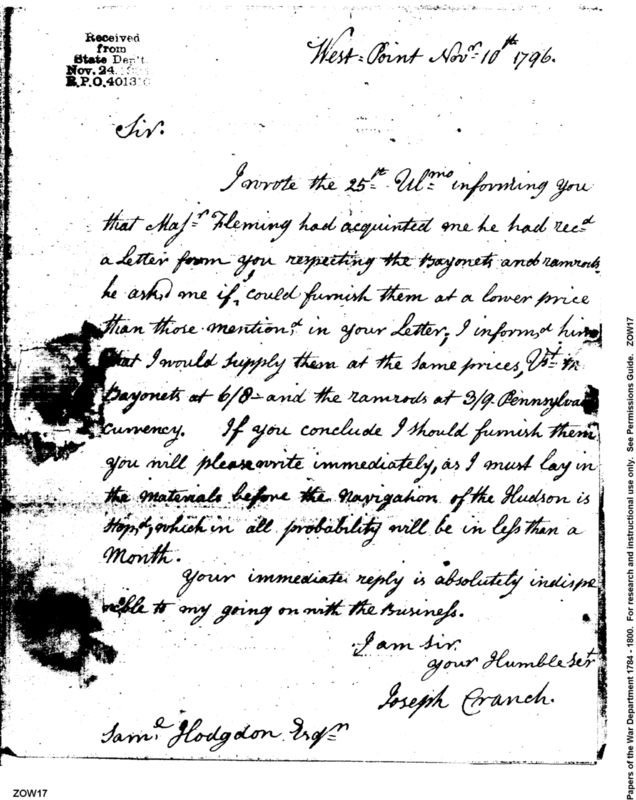 Received
from
State Dep't.
Nov. 24
R.P.O. 4013
West=Point Novr. 10th 1796.
Sir.
I wrote the 25th Ulmo informing you
that Majr Fleming had acquinted me he had recd
a Letter from you respecting the Bayonets and ramrods
he askd me if I could furnish them at a lower price
than those mentiond in your Letter, I informd him
that I would supply them at the same prices, Vizt
Bayonets at 6/8 and the ramrods at 3/9 Pennsylvan
currency. If you conclude I should furnish them
you will please write immediately, as I must lay in
the materials before the Navigation of the Hudson is
stopd, which in all probability will be in less than a
Month.
Your immediate reply is absolutely indispe
nsible to my going on with the Business.
I am Sir.
your Humble Sert
Joseph Cranch.
Saml Hodgdon Esqr
ZOW17
Papers of the War Department 1784 - 1800. For research and instructional use only. See Permissions Guide. ZOW17